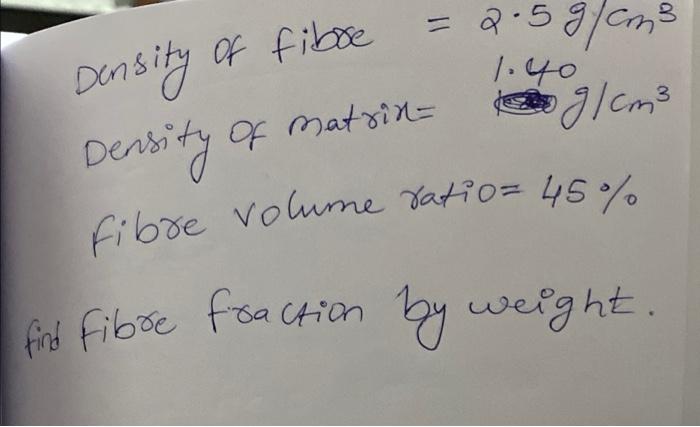 Density of fibre = 2.5 g/cm³
1.40
Density of matrix = g/cm³
fibre volume ratio = 45%
find fibre fraction by weight.